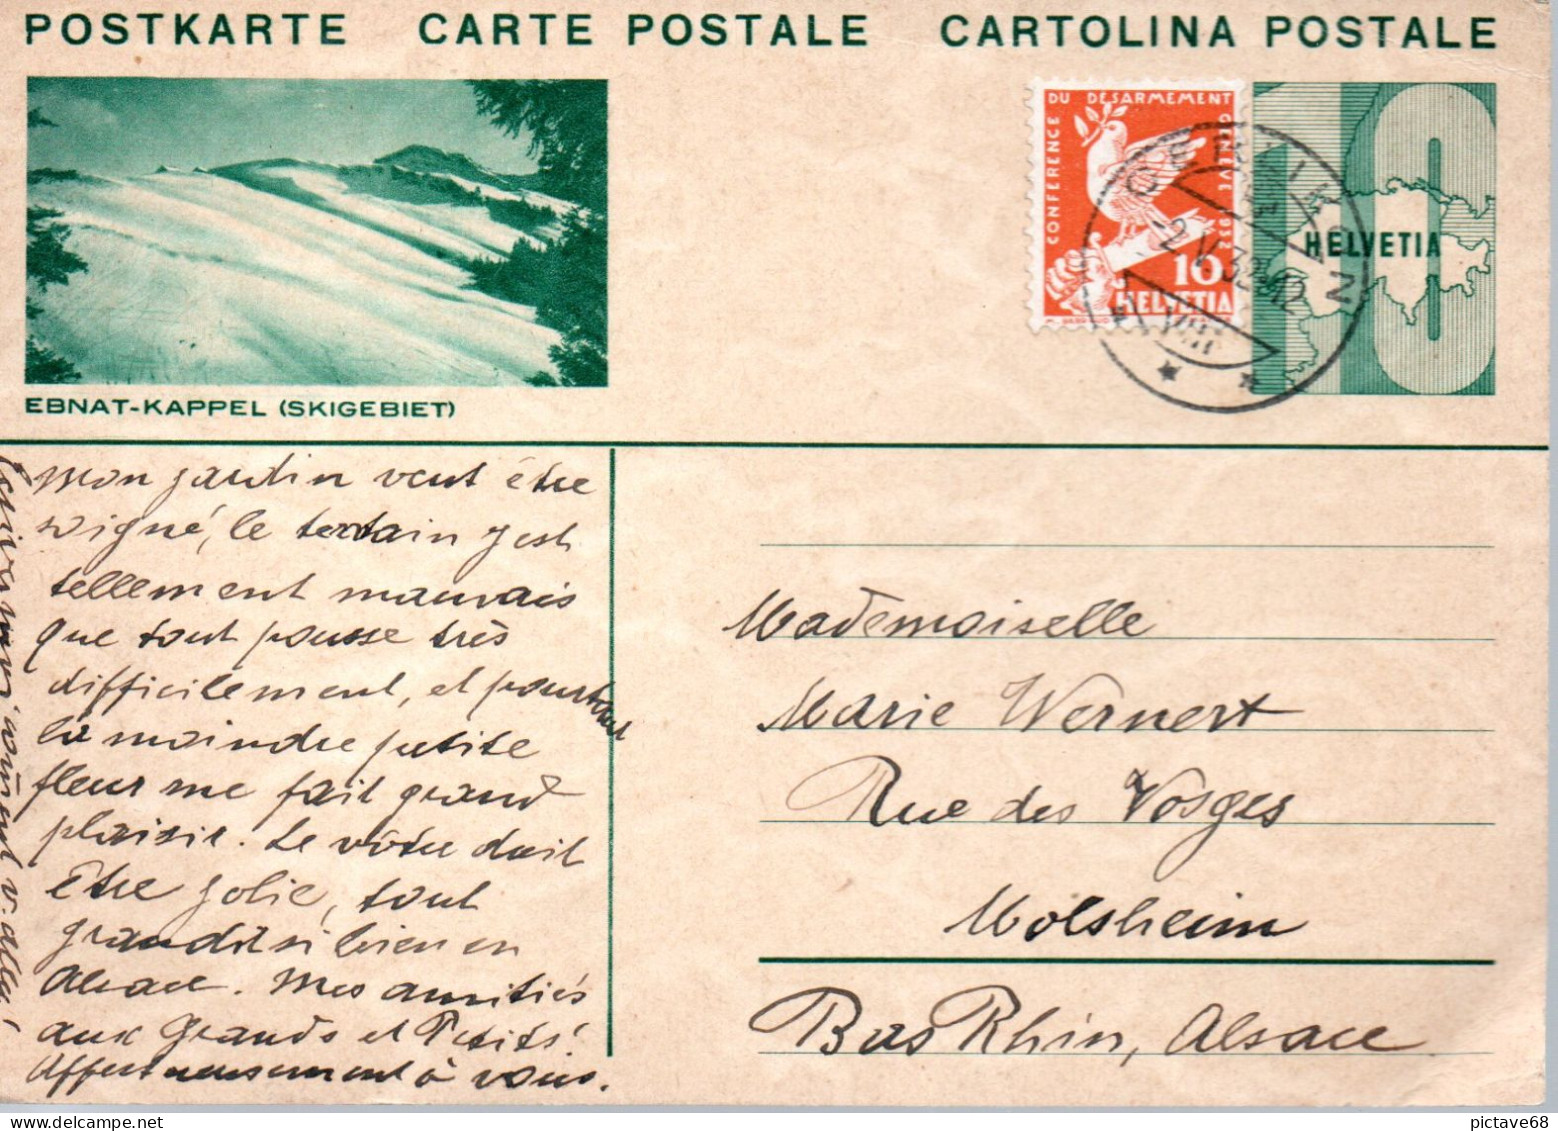 POSTKARTE CARTE POSTALE CARTOLINA POSTALE
CONFERENCE DU DÉSARMEMENT GENEVE 1932
10
HELVETIA
10
HELVETIA
OERLIKON
-2.V.32-12
VIII
EBNAT-KAPPEL (SKIGEBIET)
Mon jardin veut être
soigné, le terrain y est
tellement mauvais
que tout pousse très
difficilement, et pourtant
la moindre petite
fleur me fait grand
plaisir. Le vôtre doit
être jolie, tout
grandit si bien en
Alsace. Mes amitiés
aux Grands et Petits!
Affectueusement à vous.
Ecrivez moi souvent
Mademoiselle
Marie Wernert
Rue des Vosges
Molsheim
Bas Rhin, Alsace
pictave68